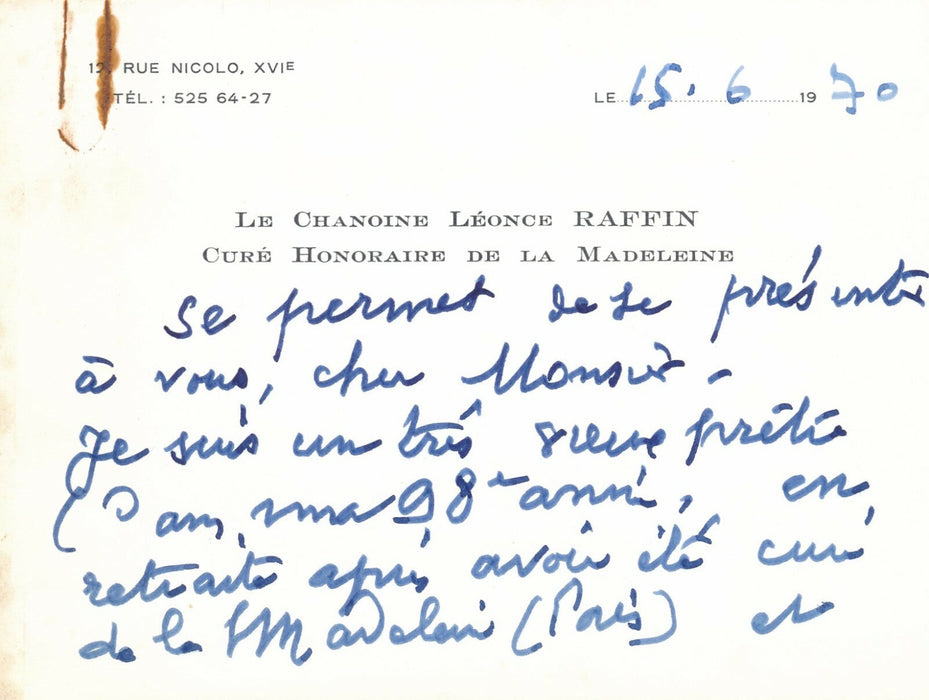 12, RUE NICOLO, XVIE
TÉL. : 525 64-27
LE 15.6 1970
LE CHANOINE LÉONCE RAFFIN
CURÉ HONORAIRE DE LA MADELEINE
se permet de se présenter
à vous, cher Monsieur -
Je suis un très vieux prêtre
(Dans ma 98e année, en
retraite après avoir été curé
de la Madeleine (Paris) et